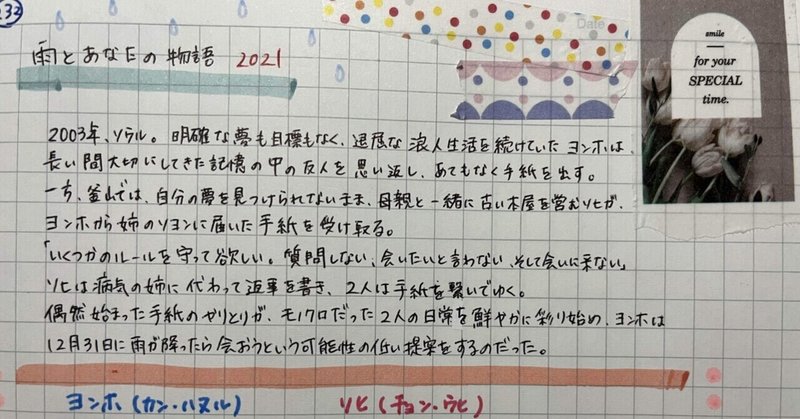 232
Date
smile
for your
SPECIAL
time.
雨とあなたの物語 2021
2003年、ソウル。明確な夢も目標もなく、退屈な浪人生活を続けていたヨンホは、
長い間大切にしてきた記憶の中の友人を思い返し、あてもなく手紙を出す。
一方、釜山では、自分の夢を見つけられないまま、母親と一緒に古い本屋を営むソヒが、
ヨンホから姉のソヨンに届いた手紙を受け取る。
「いくつかのルールを守って欲しい。質問しない、会いたいと言わない、そして会いに来ない」
ソヒは病気の姉に代わって返事を書き、2人は手紙を繋いでゆく。
偶然始まった手紙のやりとりが、モノクロだった2人の日常を鮮やかに彩り始め、ヨンホは
12月31日に雨が降ったら会おうという可能性の低い提案をするのだった。
ヨンホ(カン・ハヌル) ソヒ(チョン・ウヒ)